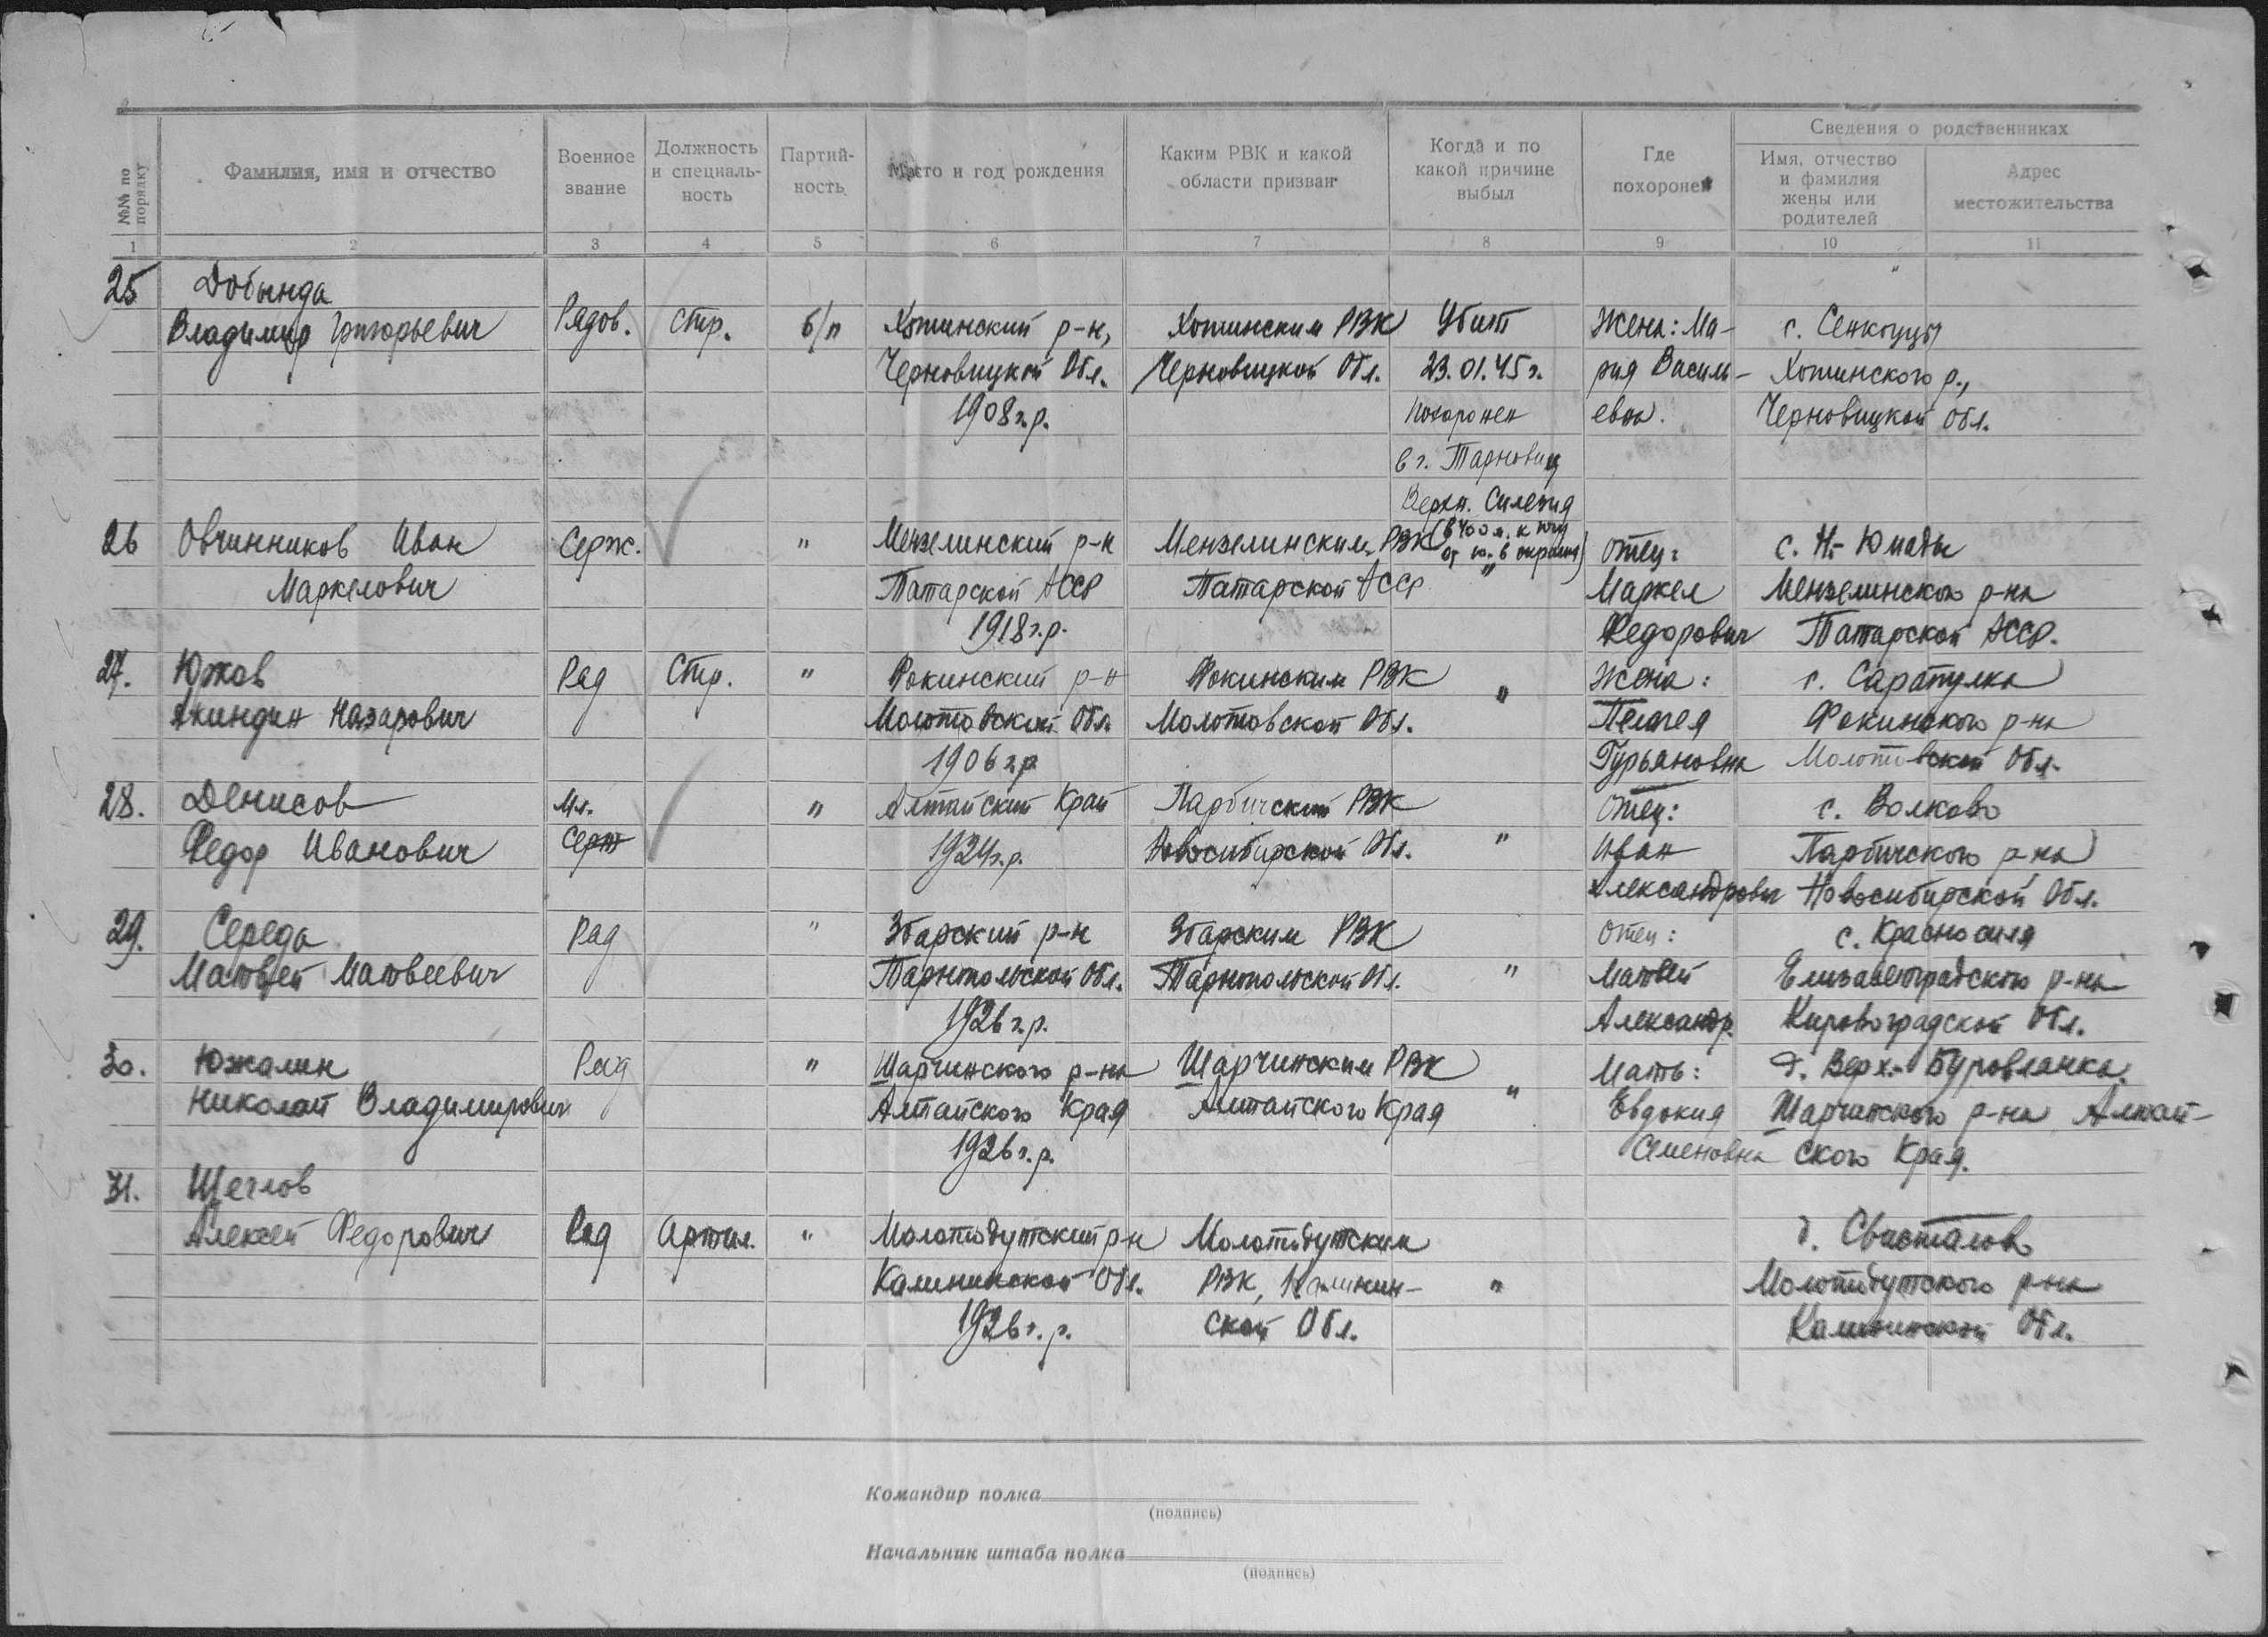 №№ по порядку
Фамилия, имя и отчество
Военное звание
Должность и специальность
Партийность
Место и год рождения
Каким РВК и какой области призван
Когда и по какой причине выбыл
Где похоронен
Сведения о родственниках
Имя, отчество и фамилия жены или родителей
Адрес местожительства
1 2 3 4 5 6 7 8 9 10 11
25 Добында
Владимир Григорьевич Рядов. стр. б/п Хотинский р-н, Хотинским РВК Убит Жена: Ма- с. Сенкоуцы
Черновицкой Обл. Черновицкой Обл. 23.01.45г. рия Василь- Хотинского р.,
1908г.р. похоронен евна. Черновицкой Обл.
в г. Тарновиц
Верхн. Силезия
(в 400 м. к югу
от ю.-в окраины)
26 Овчинников Иван Серж. " Мензелинский р-н Мензелинским РВК отец: с. Н.-Юмады
Маркелович Татарской АССР Татарской АССР " Маркел Мензелинского р-на
1918г.р. Федорович Татарской АССР.
27. Южов Ряд Стр. " Фокинский р-н Фокинским РВК " Жена: с. Сарапулка
Акиндин Назарович Молотовской Обл. Молотовской Обл. Пелагея Фокинского р-на
1906г.р Гурьяновна Молотовской Обл.
28. Денисов Мл. " Алтайский Край Парбигский РВК Отец: с. Волково
Федор Иванович Серж 1924г.р. Новосибирской Обл. " Иван Парбигского р-на
Александрович Новосибирской Обл.
29. Середа Ряд " Збарский р-н Збарским РВК отец: с.
Матвей Матвеевич Тарнопольской Обл. Тарнопольской Обл. " Матвей Елизаветградского р-на
1926г.р. Александр. Кировоградской Обл.
30. Южалин Ряд " Шарчинского р-на Шарчинским РВК Мать: д. Верх.-Буровланка.
Николай Владимирович Алтайского Края Алтайского Края " Евдокия Шарчинского р-на Алтай-
1926г.р. Семеновна ского Края.
31. Щеглов
Алексей Федорович Ряд Артил. " Молотовутский р-н Молотовутским д.
Калининской Обл. РВК, Калинин- " Молотовутского р-на
1926г.р. ской Обл. Калининской Обл.
Командир полка
(подпись)
Начальник штаба полка
(подпись)